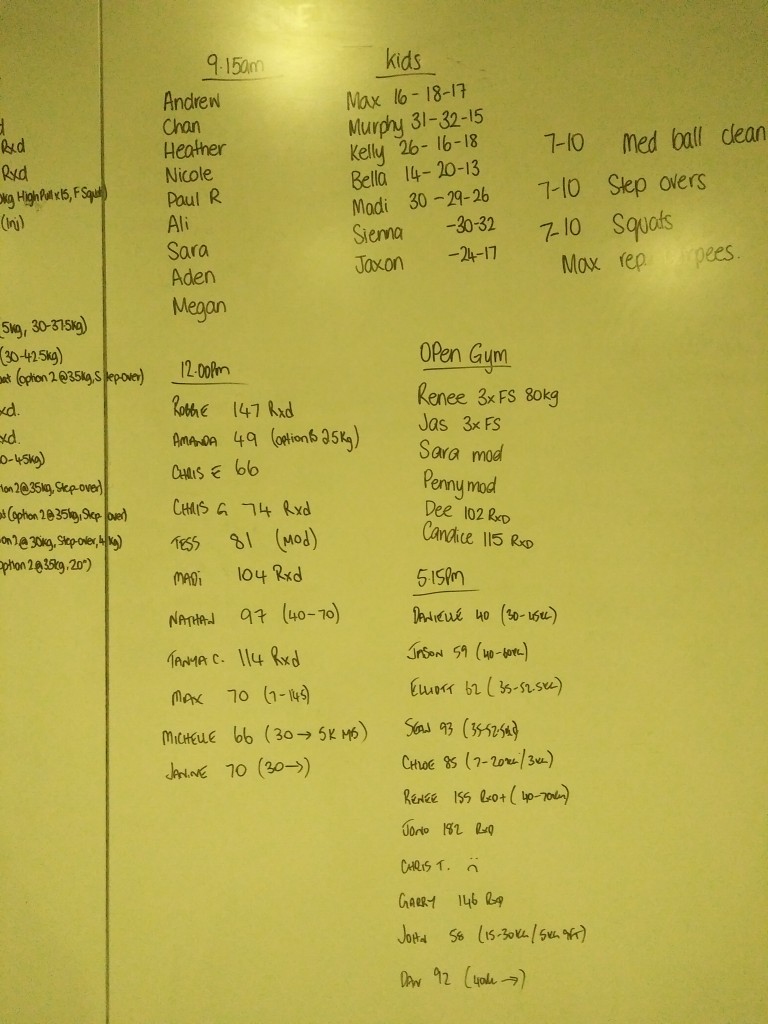 d
Rxd
Rxd
kg High Pull x 15, F Squat)
(Inj)
5kg, 30-37.5kg)
(30-42.5kg)
(option 2 @ 35kg, Step-over)
xd.
xd.
0-45kg)
ion 2 @ 35kg, Step-over)
(option 2 @ 35kg, Step over)
on 2 @ 30kg, Step-over, 4kg)
option 2 @ 35kg, 20")
9.15am
Andrew
Chan
Heather
Nicole
Paul R
Ali
Sara
Aden
Megan
Kids
Max 16-18-17
Murphy 31-32-15
Kelly 26-16-18
Bella 14-20-13
Madi 30-29-26
Sienna -30-32
Jaxon -24-17
7-10 Med ball clean
7-10 Step overs
7-10 Squats
Max rep
12.00pm
ROBBIE 147 Rxd
AMANDA 49 25kg)
CHRIS E 66
CHRIS G 74 Rxd
TESS 81 (MOD)
MADI 104 Rxd
NATHAN 97 (40-70)
TANYA C. 114 Rxd
MAX 70
MICHELLE 66 (30→ 5K MB)
JANINE 70 (30→)
OPen Gym
Renee 3x FS 80kg
Jas 3x FS
Sara mod
Penny mod
Dee 102 RXD
Candice 115 RXD
5.15PM
DANIELLE 40
JASON 59 (40-60KG)
ELLIOTT 62 (35-52.5KG)
SEAN 93
CHLOE 85 (7-20KG/3KG)
RENEE 155 RXD+ (40-70KG)
JONO 182 RXD
CHRIS T. :(
GARRY 146 RXD
JOHN 58 (15-30KG/5KG 9FT)
DAN 92 (40KG →)